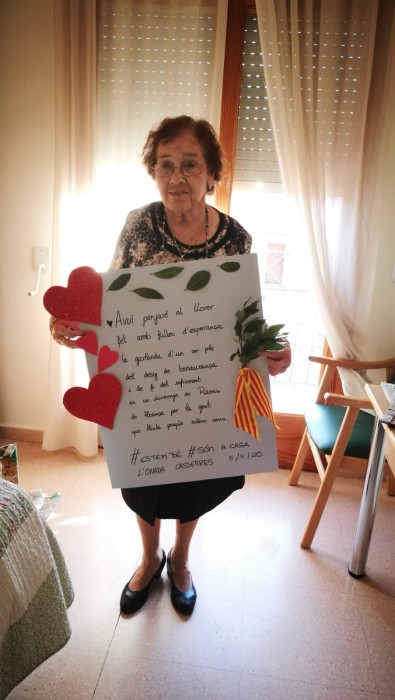 Avui penjaré al llorer
fet amb fulles d'esperança
la garlanda d'un cor ple
del desig de benaurança
i de fi del sofriment
en un diumenge de Rams
de llança per la gent
que lluita
#ESTEMBÉ #SÓM A CASA
L'ONADA CASSERRES 5/4/20